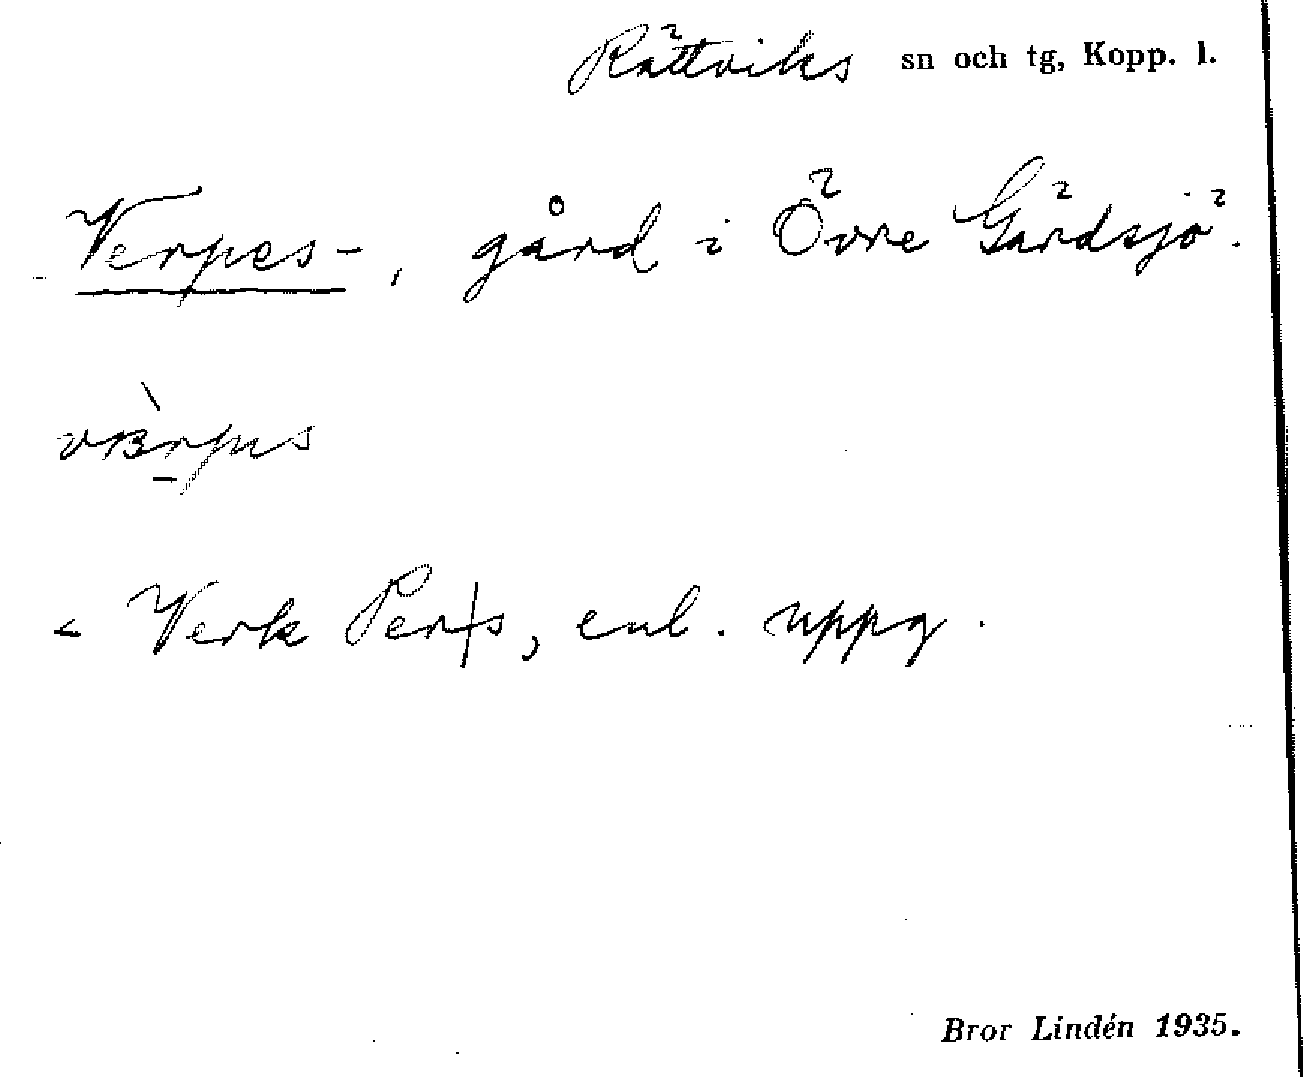 Rättviks sn och tg, Kopp. l.
Verpes-, gård i Övre Gärdsjö.
< Verk Per|s, enl. uppg.
Bror Lindén 1935.